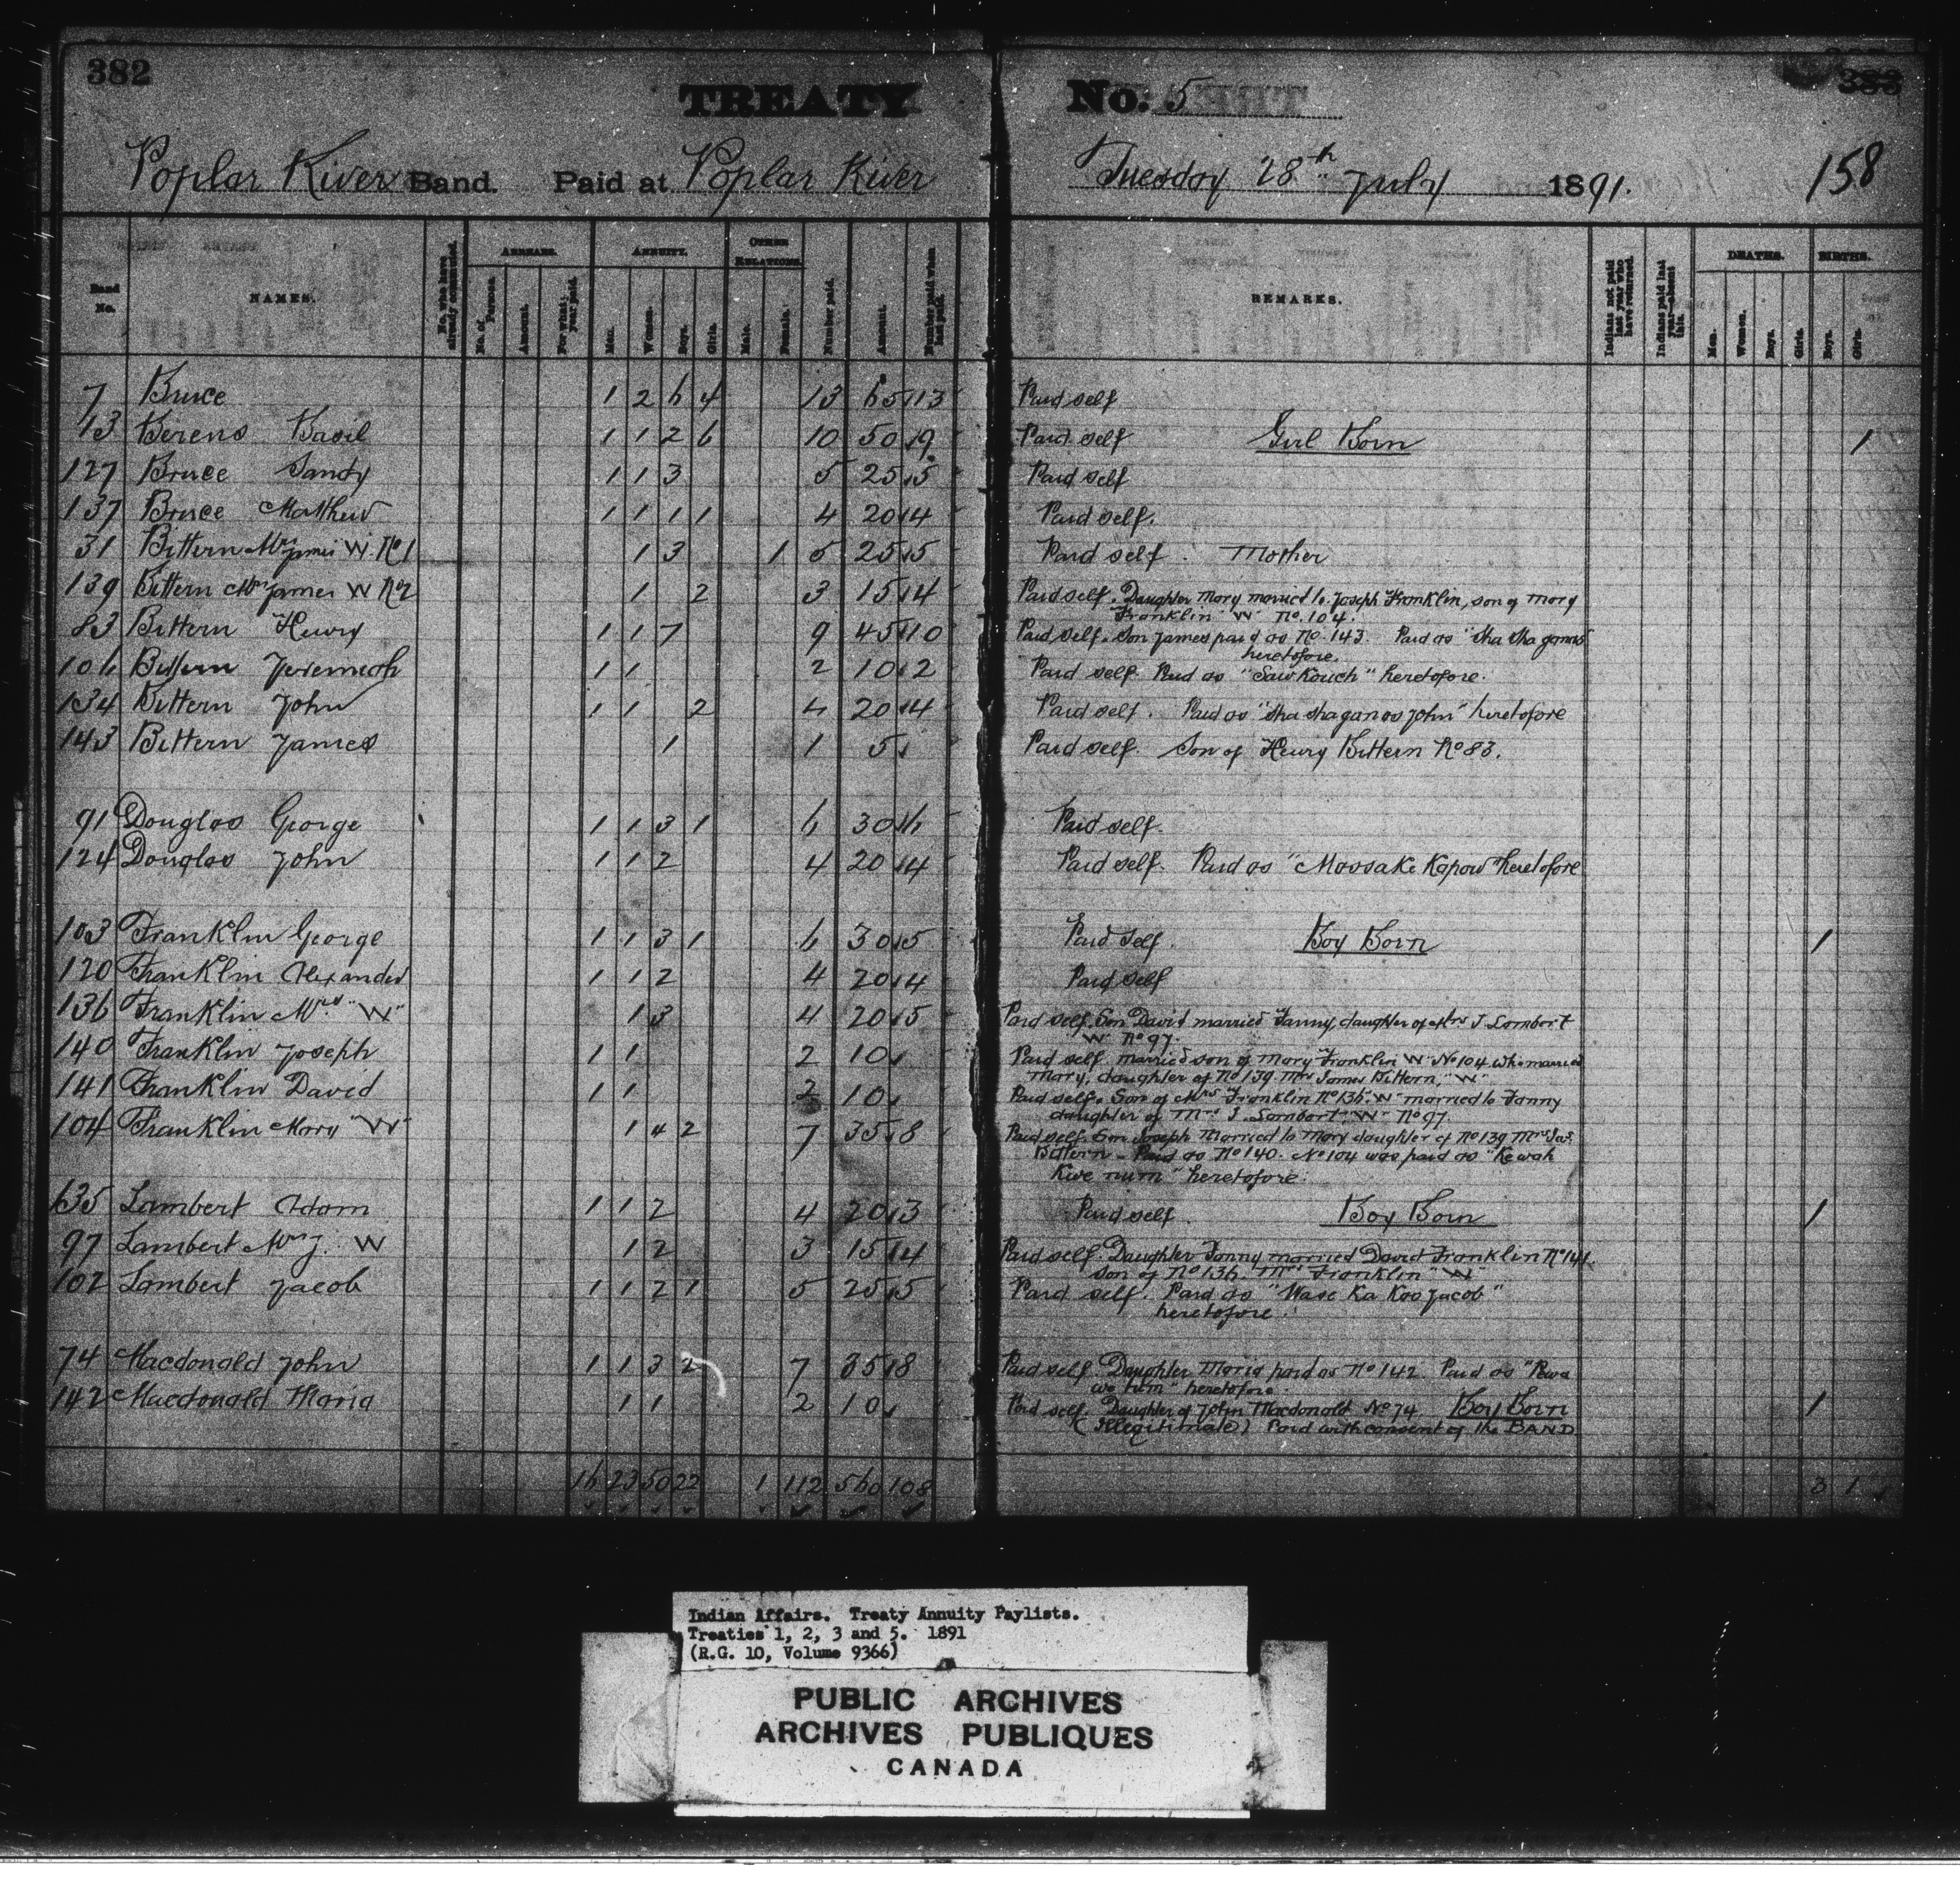 382
TREATY No. 5
383
Poplar River Band. Paid at Poplar River Tuesday 28th July 1891.
158
Band No.
NAMES.
No. who have already commuted.
ARREARS.
No. of Persons.
Amount.
For what year paid.
ANNUITY.
Men.
Women.
Boys.
Girls.
OTHER RELATIONS.
Male.
Female.
Number paid.
Amount.
Number paid when last paid.
REMARKS.
Indians not paid last year who have returned.
Indians paid last year—absent this.
DEATHS.
Men.
Women.
Boys.
Girls.
BIRTHS.
Boys.
Girls.
7 Bruce 1 2 6 4 13 65 13 Paid self
13 Berens Basil 1 1 2 6 10 50 9 Paid self Girl Born 1
127 Bruce Sandy 1 1 3 5 25 5 Paid self
137 Bruce Matthew 1 1 1 1 4 20 4 Paid self.
31 Bittern Mrs James W. No 1 1 3 1 5 25 5 Paid self. Mother
139 Bittern Mrs James W No 2 1 2 3 15 4 Paid self. Daughter Mary married to Joseph Franklin, son of Mary
Franklin "W" No. 104.
83 Bittern Henry 1 1 7 9 45 10 Paid self. Son James paid as No. 143. Paid as "Sha Sha ganas"
heretofore.
106 Bittern Jeremiah 1 1 2 10 2 Paid self. Paid as "Saw Kouch" heretofore.
134 Bittern John 1 1 2 4 20 4 Paid self. Paid as "Sha shaganas John" heretofore
143 Bittern James 1 1 5 Paid self. Son of Henry Bittern No 83.
91 Douglas George 1 1 3 1 6 30 6 Paid self.
124 Douglas John 1 1 2 4 20 4 Paid self. Paid as "Massake Kapow" heretofore
103 Franklin George 1 1 3 1 6 30 5 Paid self. Boy Born 1
120 Franklin Alexander 1 1 2 4 20 4 Paid self
136 Franklin Mrs "W" 1 3 4 20 5 Paid self. Son David married Fanny, daughter of Mrs J. Lambert
"W" No 97.
140 Franklin Joseph 1 1 2 10 Paid self married son of Mary Franklin "W" No 104 who married
Mary, daughter of No 139 Mrs James Bittern, "W"
141 Franklin David 1 1 2 10 Paid self. Son of Mrs Franklin No 136 "W" married to Fanny
daughter of Mrs J. Lambert, "W" No 97.
104 Franklin Mary "W" 1 4 2 7 35 8 Paid self. Son Joseph Married to Mary daughter of No 139 Mrs Jas.
Bittern - Paid as No 140. No 104 was paid as "Kewah
Kive num" heretofore.
635 Lambert Adam 1 1 2 4 20 3 Paid self. Boy Born 1
97 Lambert Mrs J. W 1 2 3 15 4 Paid self. Daughter Fanny married David Franklin No 141,
son of No 136. Mrs Franklin "W"
102 Lambert Jacob 1 1 2 1 5 25 5 Paid self. Paid as "Wase Ka Koo Jacob"
heretofore.
74 Macdonald John 1 1 3 2 7 35 8 Paid self. Daughter Maria paid as No 142. Paid as "Pewa
we tum" heretofore.
142 Macdonald Maria 1 1 2 10 Paid self. Daughter of John Macdonald No 74 Boy Born 1
(Illegitimate) Paid with consent of the BAND
16 23 50 22 1 112 560 108 3 1
Indian Affairs. Treaty Annuity Paylists.
Treaties 1, 2, 3 and 5. 1891
(R.G. 10, Volume 9366)
PUBLIC ARCHIVES
ARCHIVES PUBLIQUES
CANADA